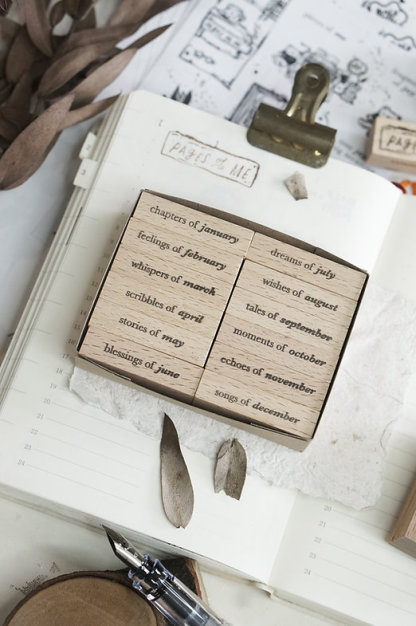 PAGES of ME
PAGES
chapters of january
feelings of february
whispers of march
scribbles of april
stories of may
blessings of june
dreams of july
wishes of august
tales of september
moments of october
echoes of november
songs of december